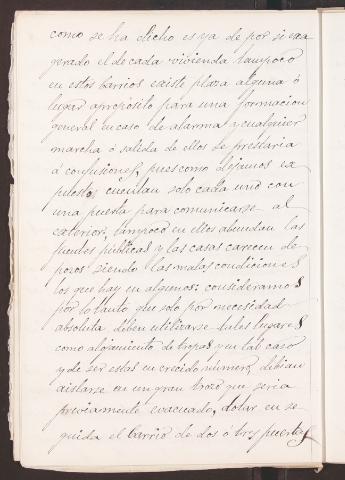 como se ha dicho es ya de por si exa
gerado el de cada vivienda tampoco
en estos barrios existe plaza alguna ó
lugar apropósito para una formacion
general en caso de alarma y cualquier
marcha ó salida de ellos se prestaria
á confusiones, pues como dejamos ex
puestos cuentan solo cada uno con
una puerta para comunicarse al
exterior, tampoco en ellos abundan las
fuentes públicas y las casas carecen de
pozos siendo las malas condiciones
los que hay en algunos: consideramos
por lo tanto que solo por necesidad
absoluta deben utilizarse tales lugares
como alojamiento de tropas y en tal caso
y de ser estas en crecido número, debian
aislarse en un gran trozo que seria
previamente evacuado, dotar en se
guida el barrio de dos ó tres puertas